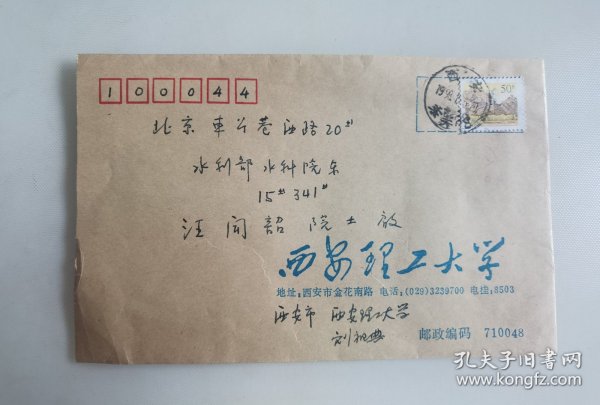 100044
50分
北京 车公庄西路20#
水利部水科院东
15# 341#
汪闻韶 院士 启
西安理工大学
地址:西安市金花南路 电话:(029)3239700 电挂:8503
西安市 西安理工大学
刘祖典
邮政编码 710048
孔夫子旧书网
www.kongfz.com